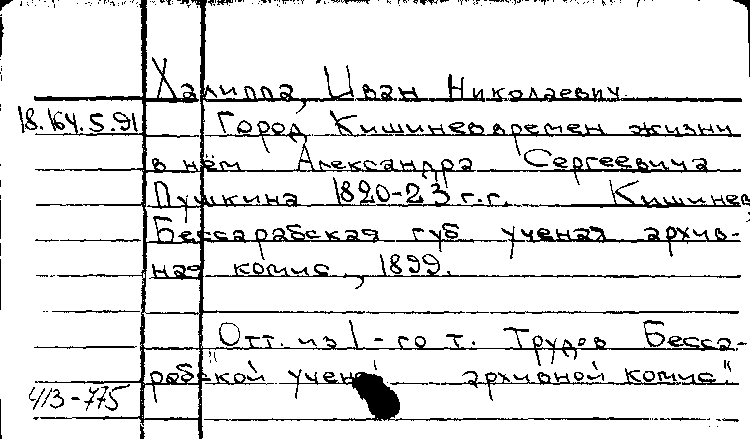 Халиппа, Иван Николаевич
18.164.5.91 Город Кишинев времен жизни
в нём Александра Сергеевича
Пушкина 1820-23 г.г. Кишинев,
Бессарабская губ. ученая архив-
ная комис., 1899.
Отт. из 1-го т. Трудов Бесса-
рабской учен. архивной комис."
413-775